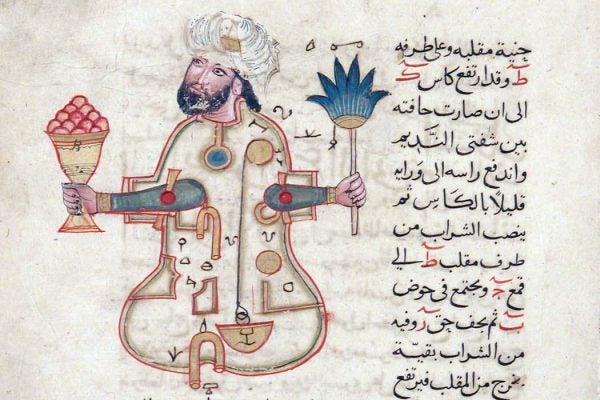 جنبة مقلبه وعلى طرفه
ط وقد ارتفع كاس ك
الى ان صارت حافته
بين شفتي النديم
واندفع راسه الى ورايه
قليلا بالكاس ثم
ينصب الشراب من
طرف مقلب ط الي
قمع ج ويجتمع في حوض
ب ثم يخف حق ر وفيه
من الشراب بقية
يخرج من المقلب فيرتفع